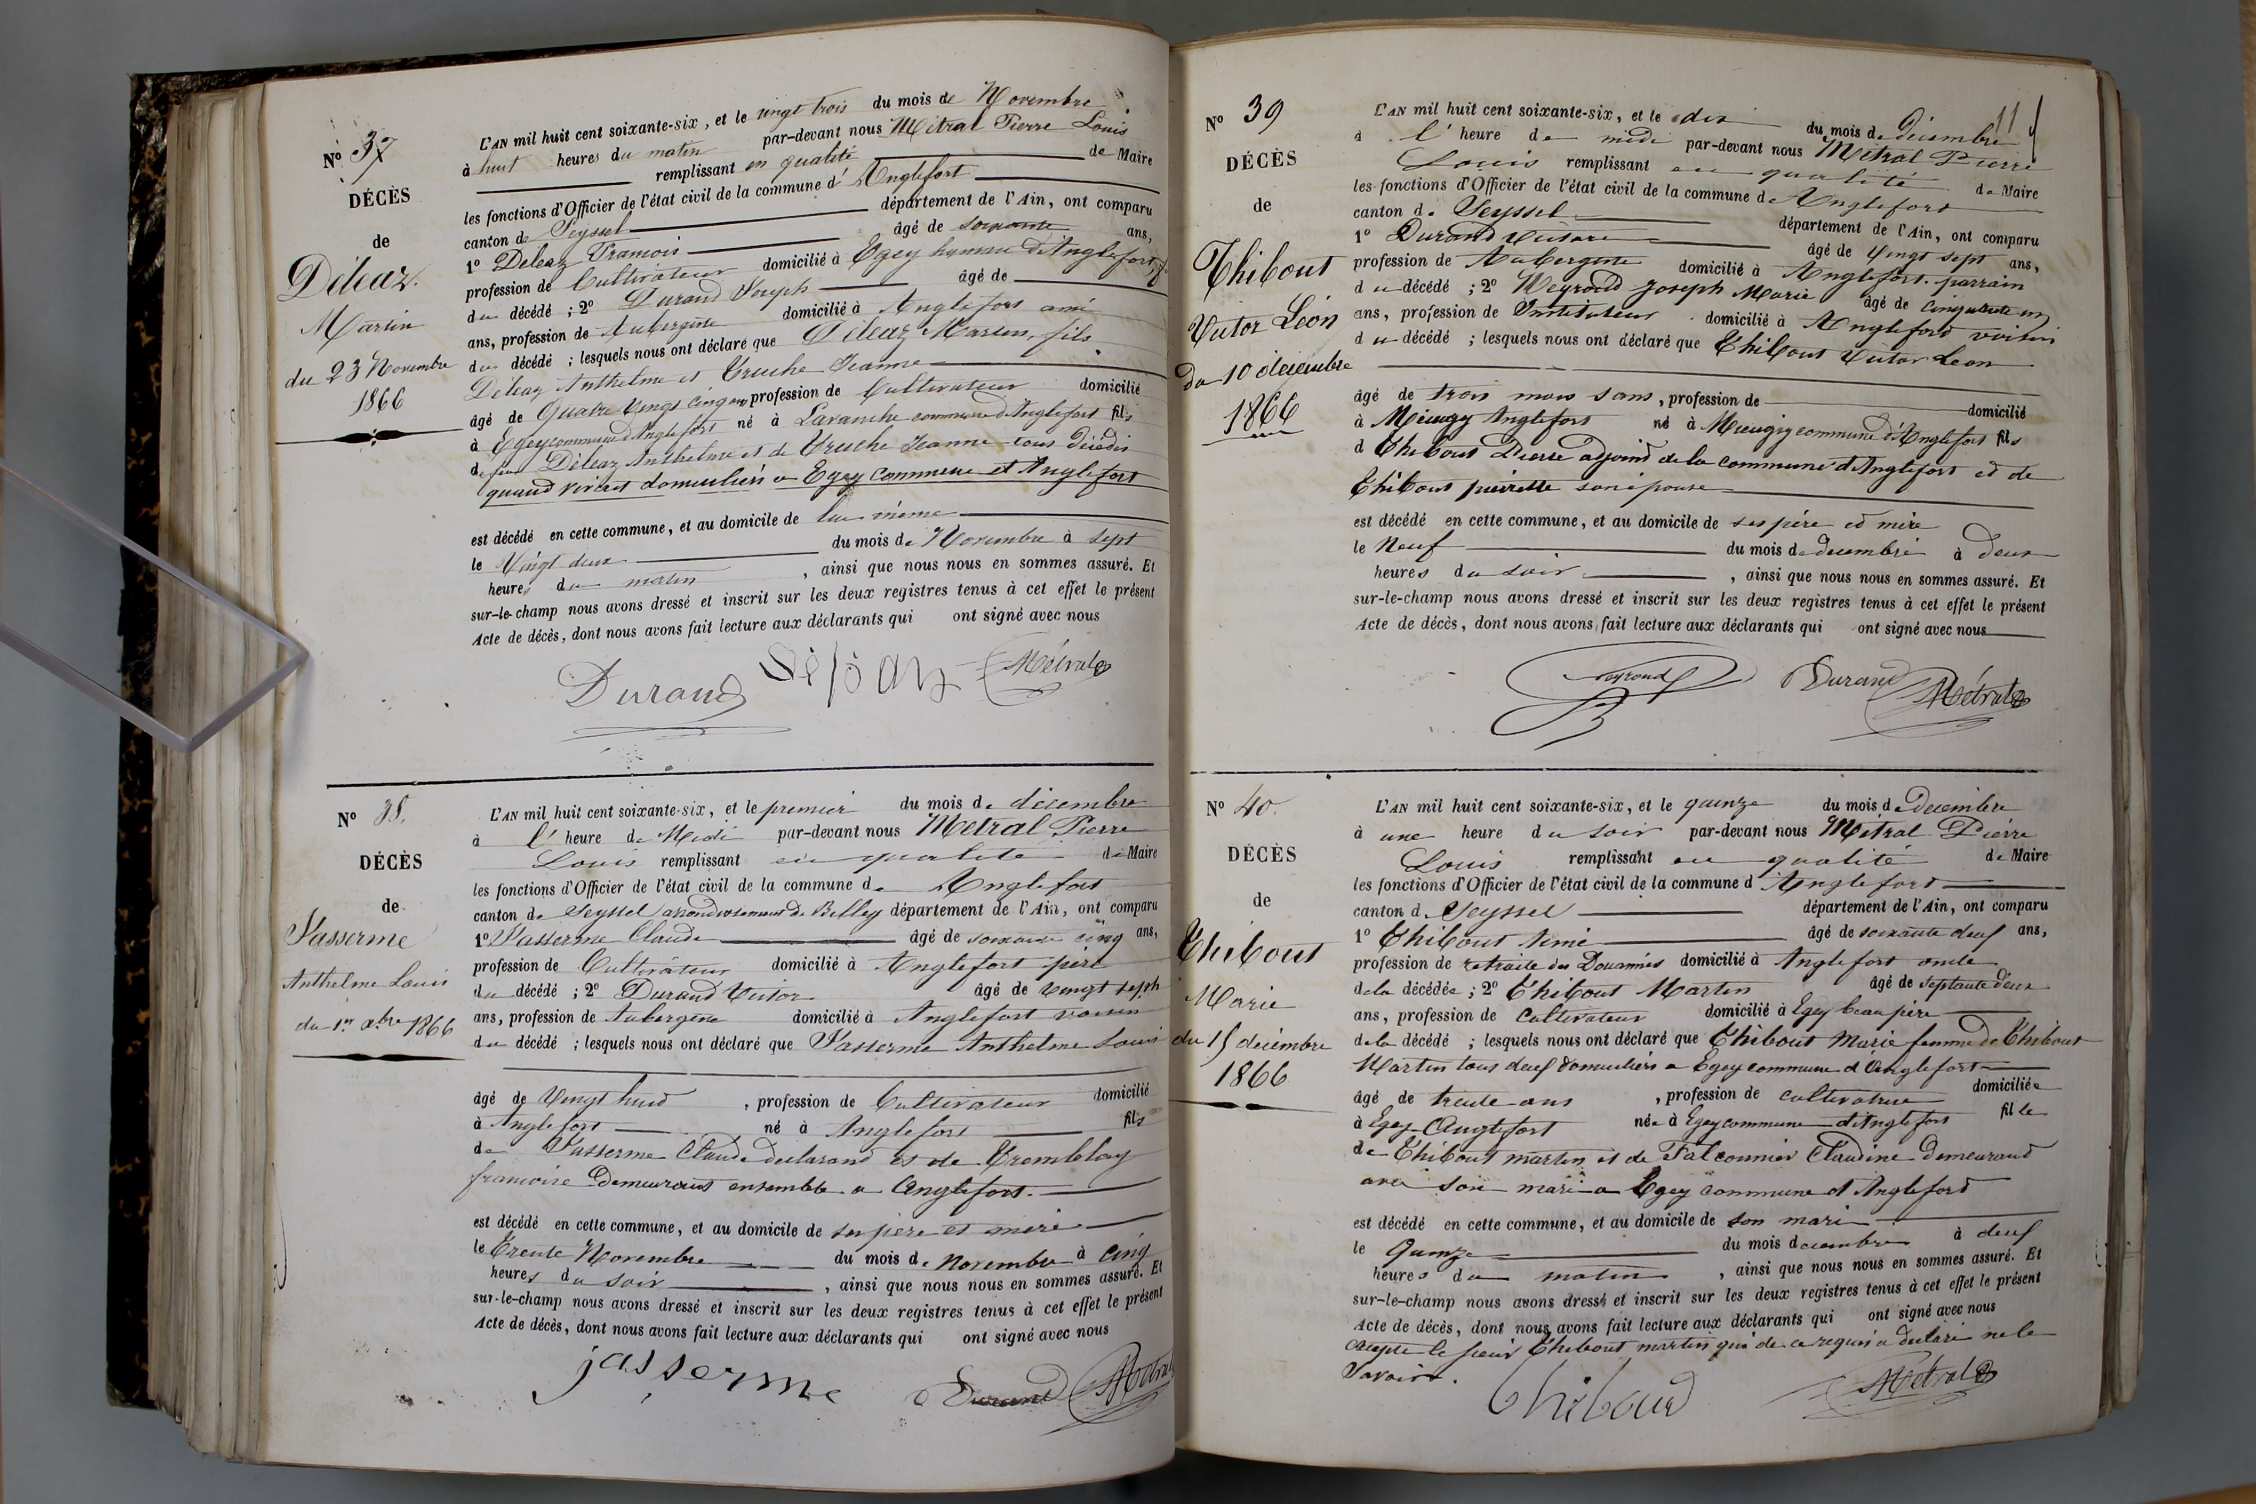 Nº 37
DÉCÈS
de
Déléaz
Martin
du 23 Novembre
1866
L'AN mil huit cent soixante-six, et le vingt trois du mois de Novembre
à huit heures du matin par-devant nous Métral Pierre Louis
remplissant en qualité de Maire
les fonctions d'Officier de l'état civil de la commune d' Anglefort
canton de Seyssel département de l'Ain, ont comparu
1º Déléaz François âgé de soixante ans,
profession de Cultivateur domicilié à Egey hameau d'Anglefort
du décédé ; 2º Durand Joseph âgé de
ans, profession de Aubergiste domicilié à Anglefort ami
du décédé ; lesquels nous ont déclaré que Déléaz Martin, fils
Déléaz Anthelme et Cruche Jeanne
âgé de Quatre Vingt Cinq ans profession de Cultivateur domicilié
à Egey commune d'Anglefort né à Lavanche commune d'Anglefort fils
de feu Déléaz Anthelme et de Cruche Jeanne tous décédés
quand vivait domiciliés a Egey commune et Anglefort
est décédé en cette commune, et au domicile de lui même
le Vingt deux du mois de Novembre à sept
heures du matin , ainsi que nous nous en sommes assuré. Et
sur-le-champ nous avons dressé et inscrit sur les deux registres tenus à cet effet le présent
Acte de décès, dont nous avons fait lecture aux déclarants qui ont signé avec nous
Durand Métral
Nº 38.
DÉCÈS
de
Jasserme
Anthelme Louis
du 1er xbre 1866
L'AN mil huit cent soixante-six, et le premier du mois de décembre
à l' heure de Midi par-devant nous Métral Pierre
Louis remplissant en qualité de Maire
les fonctions d'Officier de l'état civil de la commune de Anglefort
canton de Seyssel arrondissement de Belley département de l'Ain, ont comparu
1º Jasserme Claude âgé de soixante cinq ans,
profession de Cultivateur domicilié à Anglefort père
du décédé ; 2º Durand Victor âgé de vingt sept
ans, profession de Aubergiste domicilié à Anglefort voisin
du décédé ; lesquels nous ont déclaré que Jasserme Anthelme Louis
âgé de Vingt huit , profession de Cultivateur domicilié
à Anglefort né à Anglefort fils
de Jasserme Claude declarand et de Tremblay
francoise Demeurant ensemble a Anglefort.
est décédé en cette commune, et au domicile de ses père et mère
le Trente Novembre du mois de Novembre à cinq
heures du soir , ainsi que nous nous en sommes assuré. Et
sur-le-champ nous avons dressé et inscrit sur les deux registres tenus à cet effet le présent
Acte de décès, dont nous avons fait lecture aux déclarants qui ont signé avec nous
jasserme Durand Métral
11
Nº 39
DÉCÈS
de
Thibout
Victor Léon
du 10 décembre
1866
L'AN mil huit cent soixante-six, et le dix du mois de Décembre
à l' heure de midi par-devant nous Métral Pierre
Louis remplissant en qualité de Maire
les fonctions d'Officier de l'état civil de la commune de Anglefort
canton de Seyssel département de l'Ain, ont comparu
1º Durand Victor âgé de Vingt sept ans,
profession de Aubergiste domicilié à Anglefort. parrain
du décédé ; 2º Weyroud Joseph Marie âgé de Cinquante un
ans, profession de Instituteur domicilié à Anglefort voisin
du décédé ; lesquels nous ont déclaré que Thibout Victor Leon
âgé de trois mois sans , profession de domicilié
à Mieugy Anglefort né à Mieugy commune d'Anglefort fils
d Thibout Pierre adjoint de la commune d'Anglefort et de
Thibout pierrette son épouse
est décédé en cette commune, et au domicile de ses père et mère
le Neuf du mois de decembre à deux
heures du soir , ainsi que nous nous en sommes assuré. Et
sur-le-champ nous avons dressé et inscrit sur les deux registres tenus à cet effet le présent
Acte de décès, dont nous avons fait lecture aux déclarants qui ont signé avec nous
Durand Métral
Nº 40.
DÉCÈS
de
Thibout
Marie
du 15 décembre
1866
L'AN mil huit cent soixante-six, et le quinze du mois de Decembre
à une heure du soir par-devant nous Métral Pierre
Louis remplissant en qualité de Maire
les fonctions d'Officier de l'état civil de la commune d Anglefort
canton d. Seyssel département de l'Ain, ont comparu
1º Thibout Aimé âgé de soixante deux ans,
profession de retraite des Douannés domicilié à Anglefort oncle
de la décédée ; 2º Thibout Martin âgé de septante deux
ans, profession de Cultivateur domicilié à Egey beau père
de la décédé ; lesquels nous ont déclaré que Thibout Marie femme de Thibout
Martin tous deux domiciliés a Egey commune d'Anglefort
âgé de trente ans , profession de cultivatrice domiciliée
à Egey Anglefort née à Egey commune d'Anglefort fille
de Thibout martin et de Falconnier Claudine Demeurand
avec son mari a Egey commune d Anglefort
est décédé en cette commune, et au domicile de son mari
le Quinze du mois decembre à deux
heures du matin , ainsi que nous nous en sommes assuré. Et
sur-le-champ nous avons dressé et inscrit sur les deux registres tenus à cet effet le présent
Acte de décès, dont nous avons fait lecture aux déclarants qui ont signé avec nous
excepté le sieur Thibout martin qui de ce requis a declaré ne le
Savoir.
Thiboud Métral